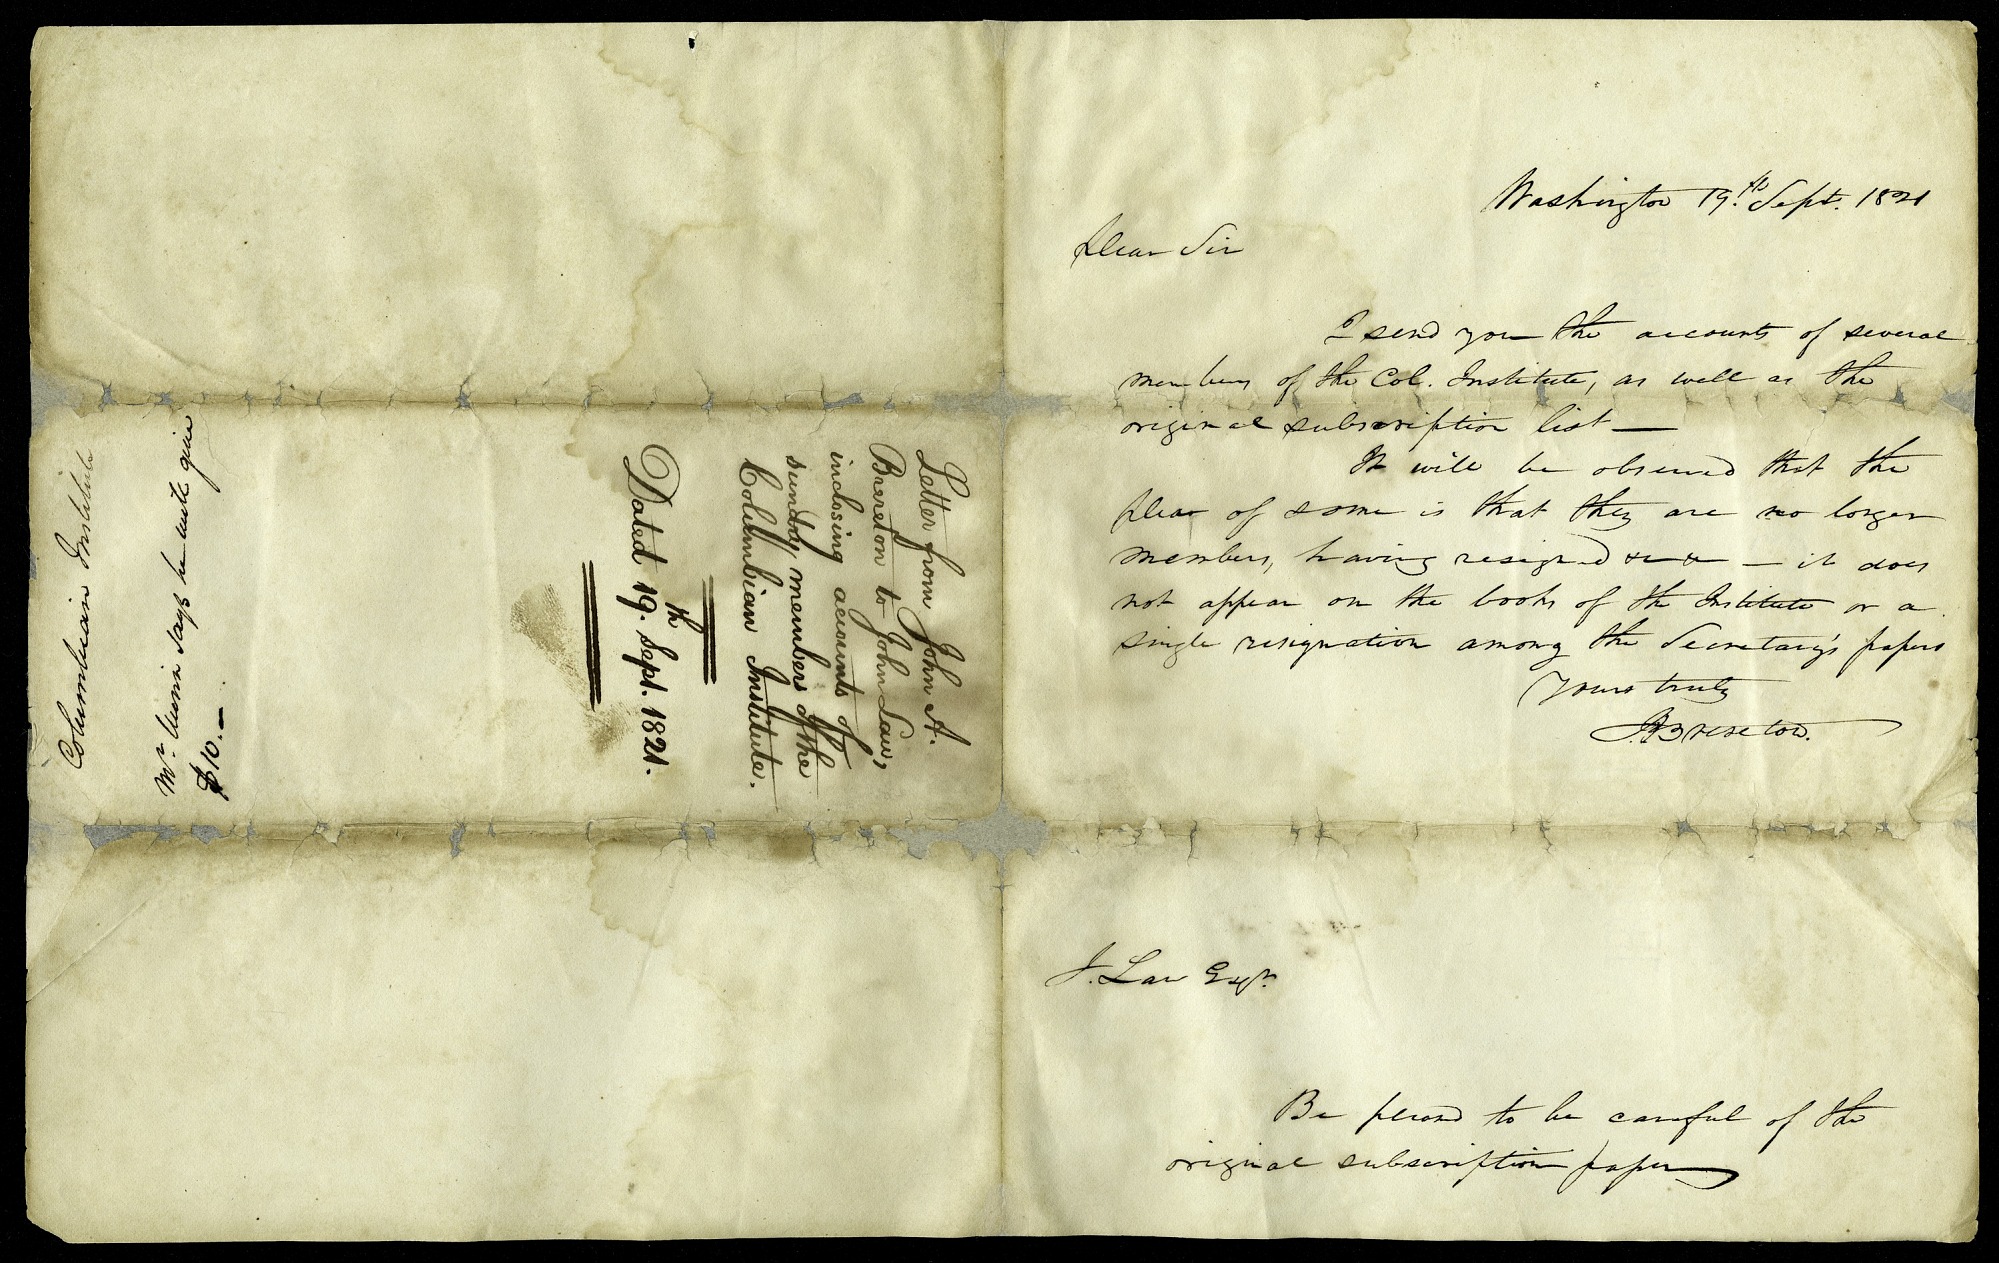 Washington 19.th Sept. 1821
Dear Sir
I send you the accounts of several
members of the Col. Institute, as well as the
original subscription list —
It will be observed that the
plea of some is that they are no longer
members, having resigned &c &c — it does
not appear on the books of the Institute or a
single resignation among the Secretary's papers
Yours truly
JABrereton.
J. Law Esqr.
Be pleased to be careful of the
original subscription paper
Letter from John A.
Brereton to John Law,
inclosing accounts of
sundry members of the
Columbian Institute.
Dated 19.th Sept. 1821.
Columbian Institute
Mr. Munn says he will give
$10.—